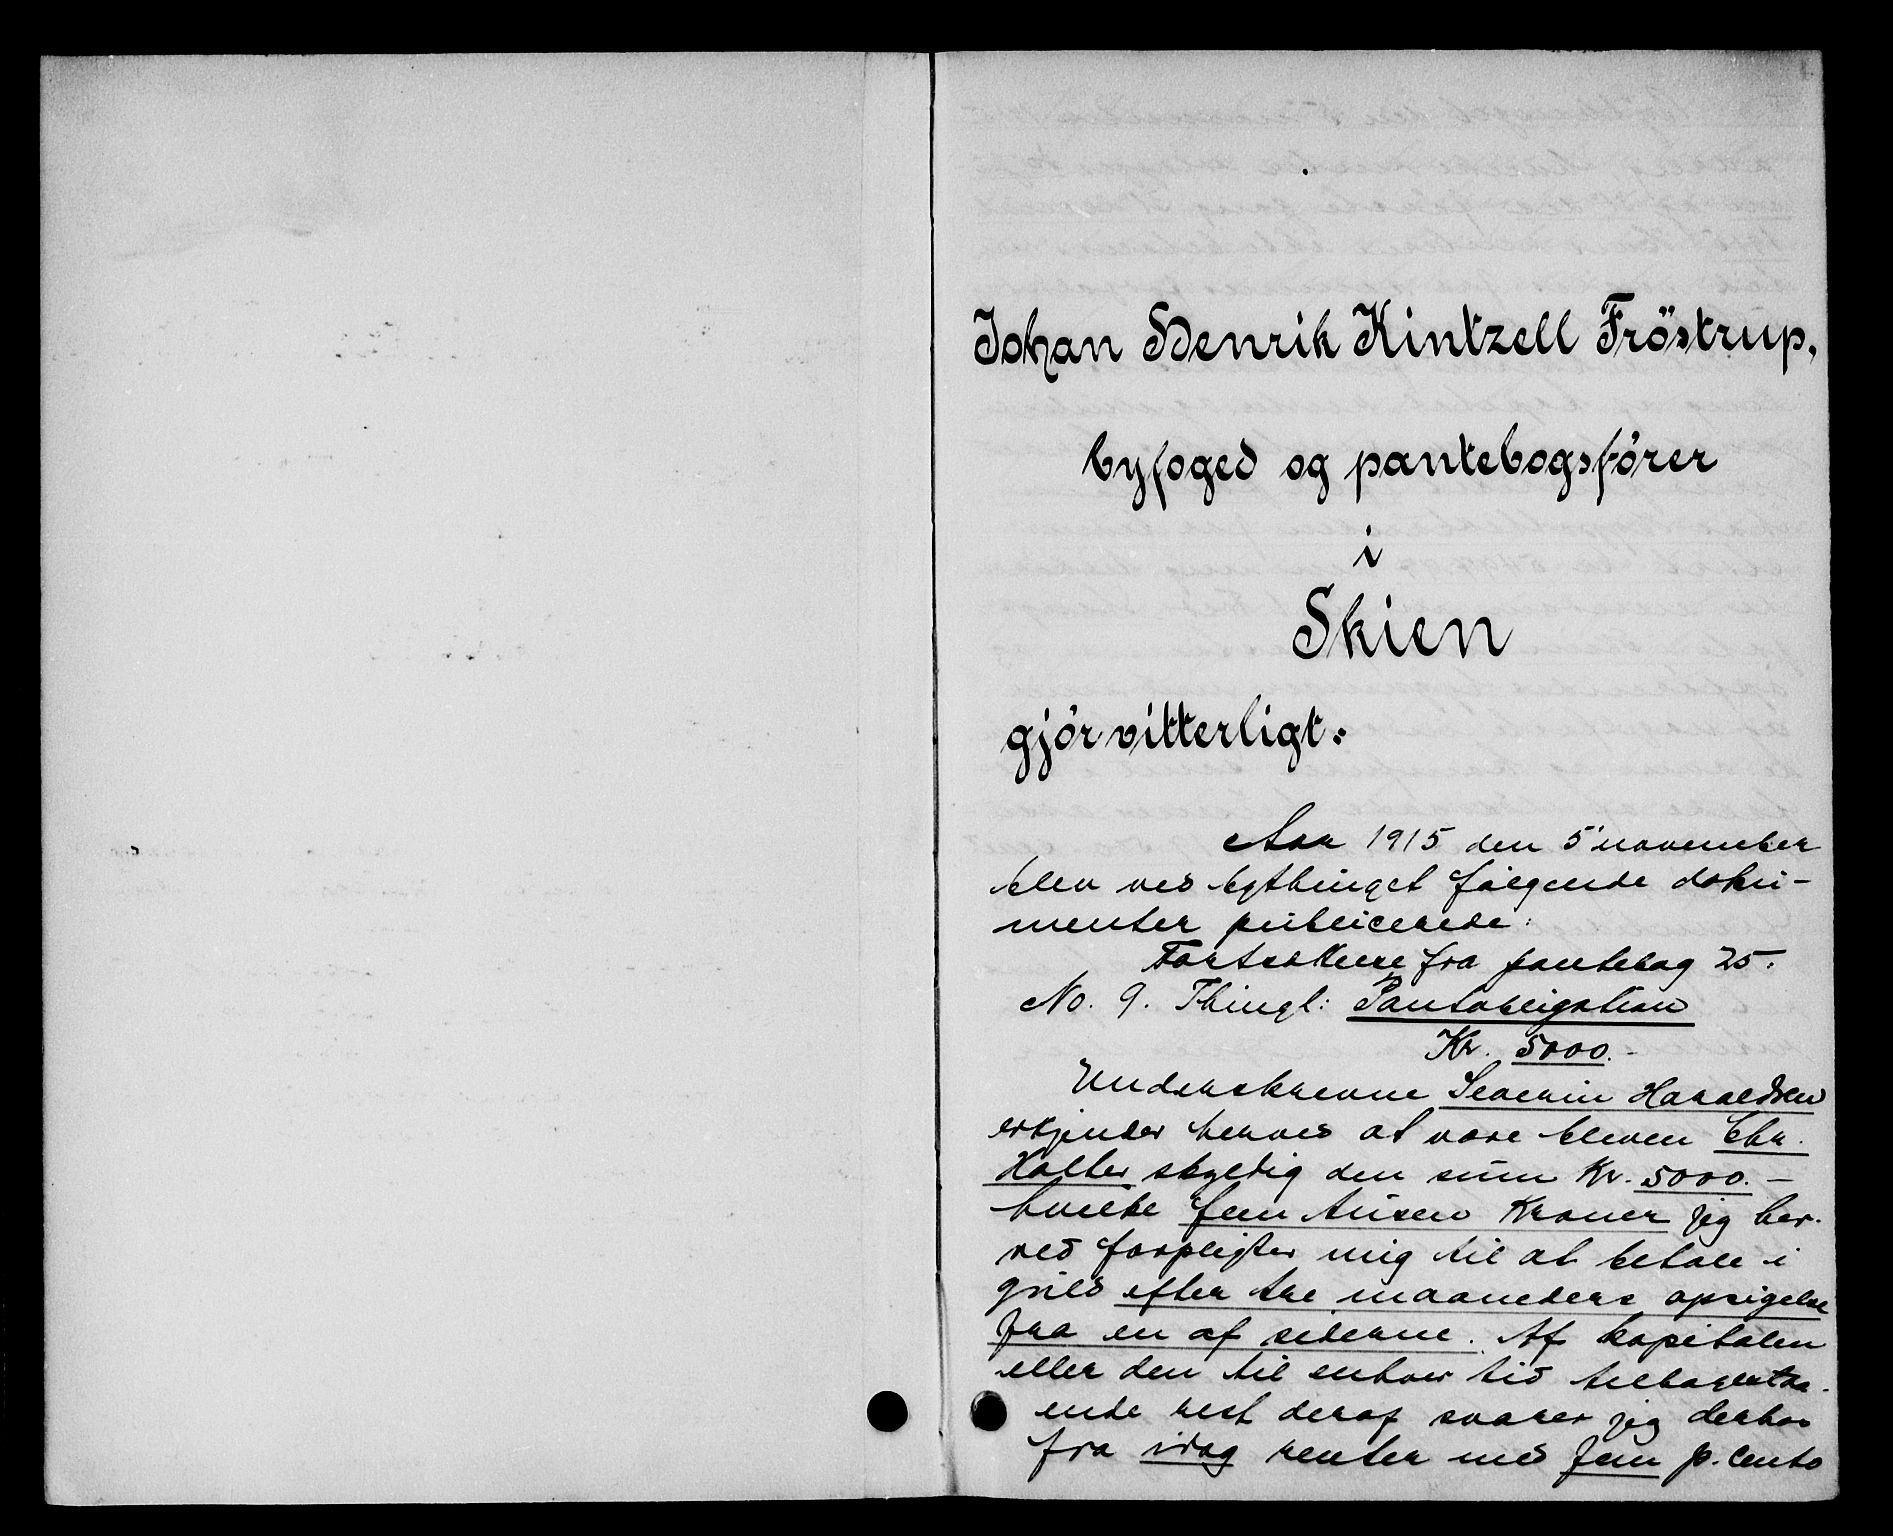 Johan Henrik Kintzell Fröstrup,
byfoged og pantebogsförer
i
Skien
gjör vitterligt:
Aar 1915 den 5' november
blev ved bythinget følgende doku-
menter publicerede:
Fortsættelse fra pantebog 25.
No. 9. Thingl: Pantobligation
Kr. 5000.-
Underskrevne Severin Haraldsen
erkjender herved at være bleven Chr.
Holter skyldig den sum Kr. 5000.-
hvilke fem tusen Kroner jeg her-
ved forpligter mig til at betale i
gjæld efter tre maaneders opsigelse
fra en af siderne. Af kapitalen
eller den til enhver tid tilbagestaa-
ende rest deraf svarer jeg derhos
fra idag renter med fem p. cento